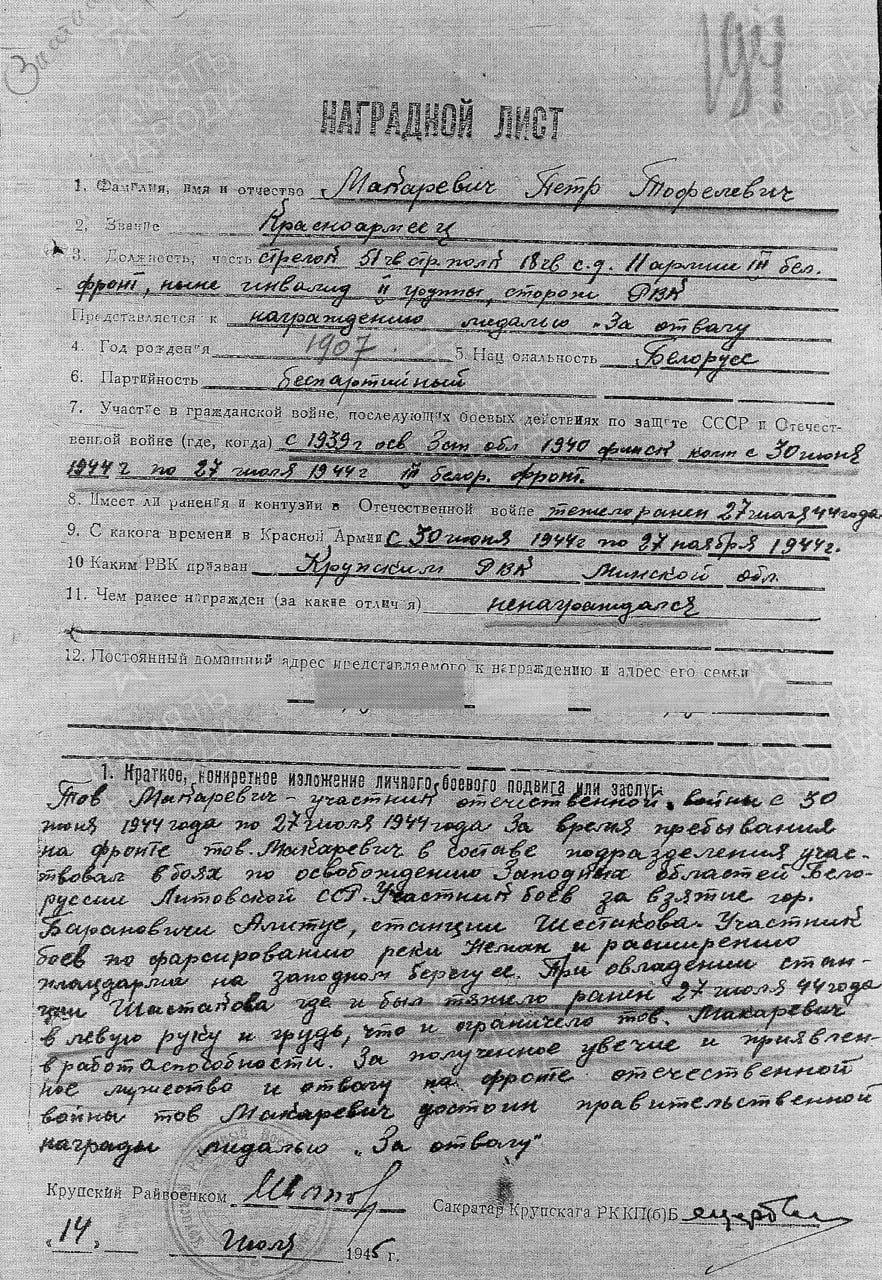 194
НАГРАДНОЙ ЛИСТ
1. Фамилия, имя и отчество Макаревич Петр Тофелевич
2. Звание Красноармеец
3. Должность, часть стрелок 51 гв стр. полк 18 гв с.д. 11 армии III бел.
фронт, ныне инвалид II группы, сторож РВК
Представляется к награждению медалью „За отвагу
4. Год рождения 1907 5. Национальность Белорусс
6. Партийность беспартийный
7. Участие в гражданской войне, последующих боевых действиях по защите СССР и Отечест-
венной войне (где, когда) с 1939г осв Зап обл 1940 финск комп с 30 июня
1944 г по 27 июля 1944 г III белор. фронт.
8. Имеет ли ранения и контузии в Отечественной войне тежело ранен 27 июля 44 года
9. С какога времени в Красной Армии с 30 июня 1944г по 27 ноября 1944г.
10 Каким РВК призван Крупским РВК Минской обл
11. Чем ранее награжден (за какие отличия) ненаграждался
12. Постоянный домашний адрес представляемого к награждению и адрес его семьи
1. Краткое, конкретное изложение личного боевого подвига или заслуг.
Тов Макаревич - участник отечественной войны с 30
июня 1944 года по 27 июля 1944 года За время пребывания
на фронте тов. Макаревич в составе подразделения учас-
твовал в боях по освобождению Западных областей Бело-
руссии Литовской ССР. Участник боев за взятие гор.
Барановичи Алитус, станции Шестакова. Участник
боев по фарсированию реки Неман и расширению
плацдарма на западном берегу ее. При овладении стан-
ции Шастакова где и был тяжело ранен 27 июля 44 года
в левую руку и грудь, что и ограничело тов. Макаревич
в работаспособности. За полученное увечие и приявлен-
ное мужество и отвагу на фронте отечественной
войны тов Макаревич достоин правительственной
награды медалью „За отвагу"
Крупский Райвоенком
Сакратар Крупскага РК КП(б)Б
„14" Июля 1945 г.
ПАМЯТЬ НАРОДА